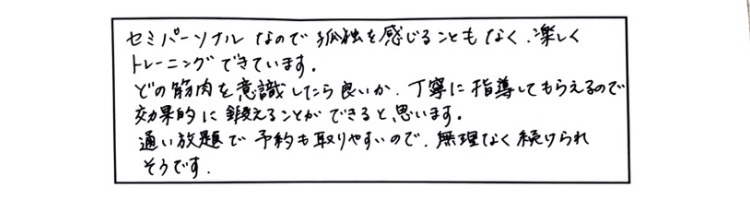 セミパーソナルなので孤独を感じることもなく、楽しく
トレーニングできています。
どの筋肉を意識したら良いか、丁寧に指導してもらえるので
効果的に鍛えることができると思います。
通い放題で予約も取りやすいので、無理なく続けられ
そうです。